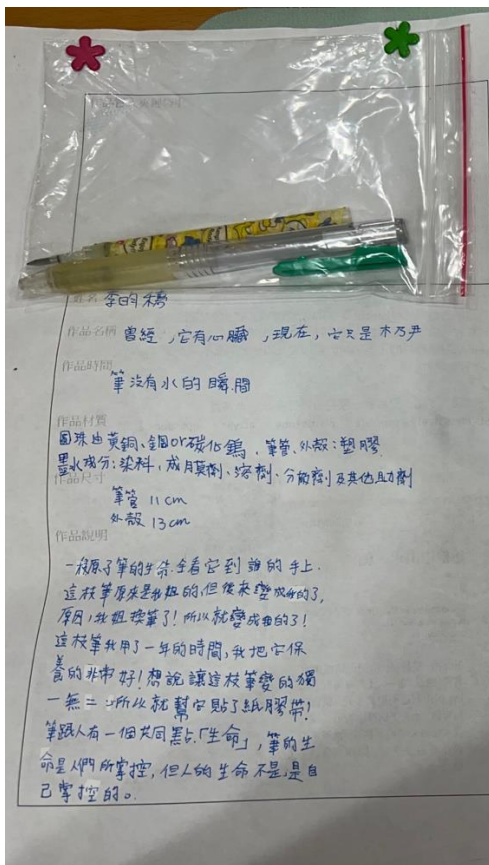 姓名 李昀穗
作品名稱 曾經,它有心臟,現在,它只是木乃尹
作品時間
筆沒有水的瞬間
作品材質
圓珠由黃銅、鋼or碳化鎢,筆管、外殼:塑膠
墨水成分:染料,成膜劑、溶劑、分散劑及其他助劑
作品尺寸
筆管 11cm
外殼 13cm
作品說明
一枝原子筆的生命.全看它到誰的手上.
這枝筆原來是我姐的,但後來變成我的了,
原因:我姐換筆了!所以就變成我的了!
這枝筆我用了一年的時間,我把它保
養的非常好!想說讓這枝筆變的獨
一無二:所以就幫它貼了紙膠帶!
筆跟人有一個共同點「生命」,筆的生
命是人們所掌控,但人的生命不是是自
己掌控的。